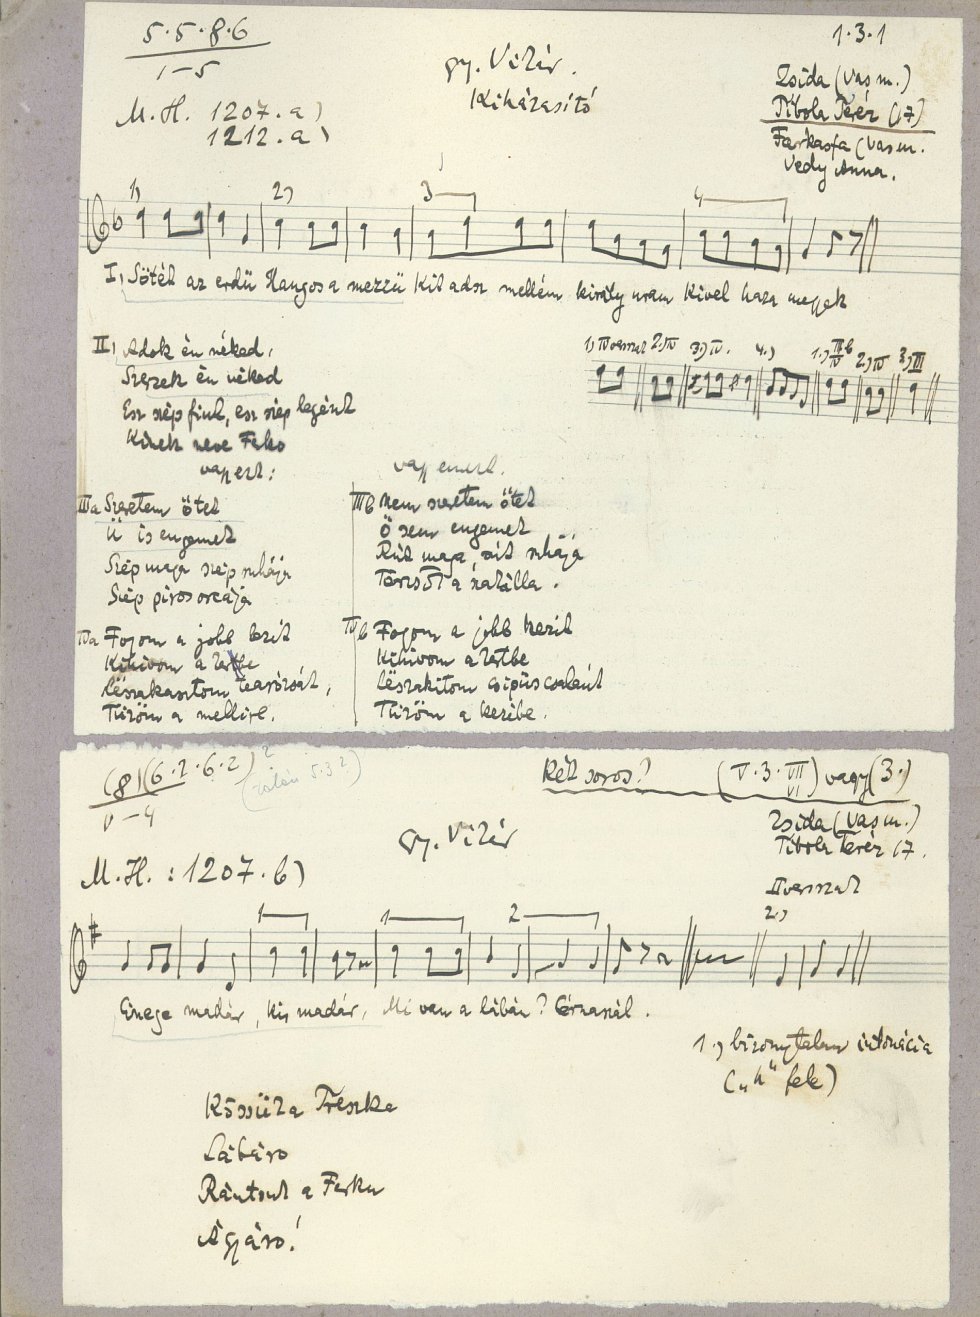 5.5.8.6
1-5
M.H. 1207.a)
1212.a)
gy. Vilár.
Kiházasító
1.3.1
Zsida (Vas m.)
Tibola Teréz (17)
Farkasfa (Vas m.
Vedy Anna.
1) 2) 3 4
I, Sötét az erdü Hangos a mezzü Kit adsz mellém király uram Kivel haza megyek
II, Adok én néked,
Szerzek én néked
Esz szép fiut, esz szép legént
Kinek neve Ferko
vagy ezt:
1.) IV versszak 2.) IV 3.) IV. 4.) 1.) III b IV 2.) IV 3.) III
vagy emezt.
IIIa Szeretem ötet
Ü is engemet
Szép maga szép ruhája
Szép piros orcája
IIIb Nem szeretem ötet
Ö sem engemet
Rút maga, rút ruhája
IVa Fogom a jobb kezit
Kihivom a kertbe
Lészakasztom
Tüzöm a mellire.
IVb Fogom a jobb kezit
Kihivom a kertbe
Lészakitom csipüs csalánt
Tüzöm a kezibe.
(8)(6.2.6.2)?
(talán 5.3?)
V-4
Két soros?
(V.3.VII VI) vagy (3.)
gy. Vilár
Zsida (Vas m.)
Tibola Teréz 17.
M.H.: 1207.b)
II versszak
1 1 2 2.)
Cinege madár, kis madár, Mi van a lábán? Cérnaszál.
1.) bizonytalan intonácia
("h" fele)
Treszka
Lábáro
Rántsuk a Ferku
Ágyáro!